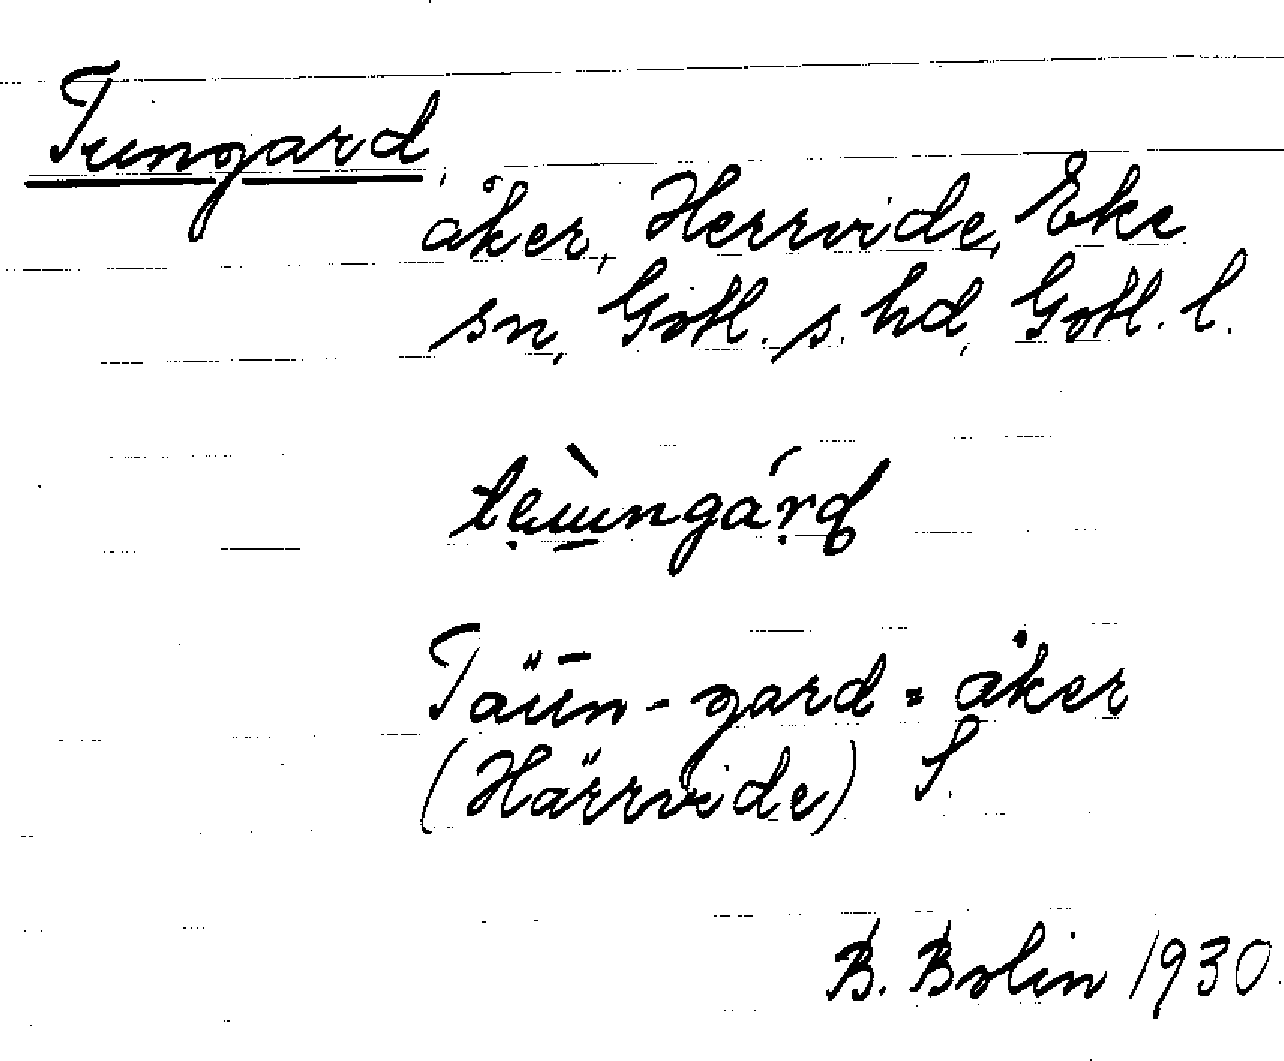 Tungard,
åker, Herrvide, Eke
sn, Gotl. s. hd, Gotl. l.
Täūn-gard = åker
(Härrvide) S.
B. Bolin 1930.